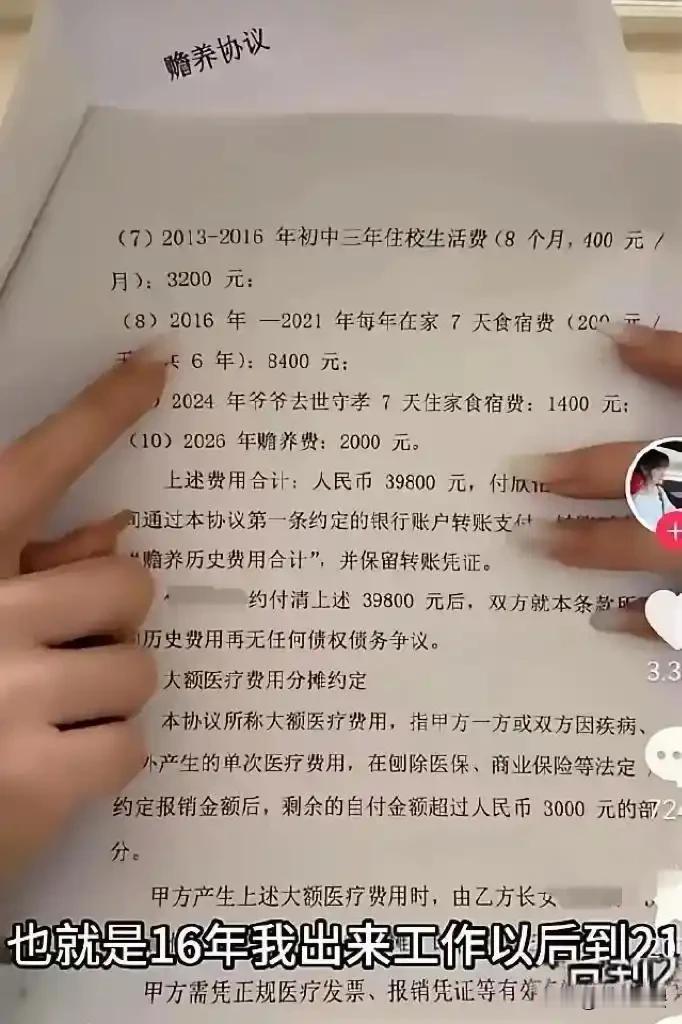 赡养协议
（7）2013-2016 年初中三年住校生活费（8 个月，400 元 /
月）：3200 元；
（8）2016 年 —2021 年每年在家 7 天食宿费（200 元 /
共 6 年）：8400 元；
2024 年爷爷去世守孝 7 天住家食宿费：1400 元；
（10）2026 年赡养费：2000 元。
上述费用合计：人民币 39800 元，付欣
间通过本协议第一条约定的银行账户转账支付，
“赡养历史费用合计”，并保留转账凭证。
约付清上述 39800 元后，双方就本条款所
历史费用再无任何债权债务争议。
大额医疗费用分摊约定
本协议所称大额医疗费用，指甲方一方或双方因疾病、
外产生的单次医疗费用，在刨除医保、商业保险等法定
约定报销金额后，剩余的自付金额超过人民币 3000 元的部
分。
甲方产生上述大额医疗费用时，由乙方长女
也就是16年我出来工作以后到21
甲方需凭正规医疗发票、报销凭证等有
3.3
724